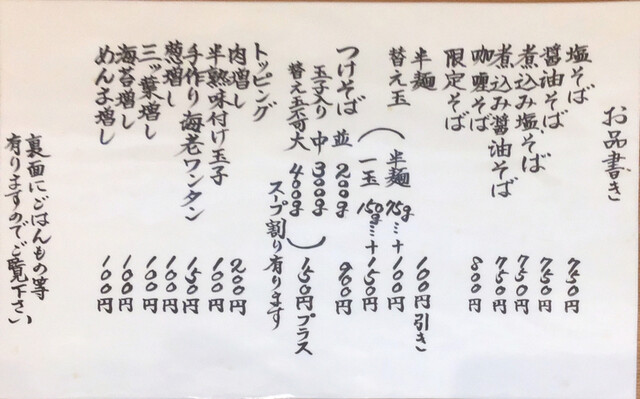 お品書き
塩そば 750円
醤油そば 750円
煮込み塩そば 750円
煮込み醤油そば 750円
咖喱そば 800円
限定そば
半麺 100円引き
替え玉 ( 半麺 75g…+100円
一玉 150g…+150円
つけそば 並 200g 900円
玉子入り 中 300g
替え玉不可 大 400g ) 150円プラス
スープ割り有ります
トッピング
肉増し 200円
半熟味付け玉子 100円
手作り海老ワンタン 150円
葱増し 100円
三ッ葉増し 100円
海苔増し 100円
めんま増し 100円
裏面にごはんもの等
有りますのでご覧下さい